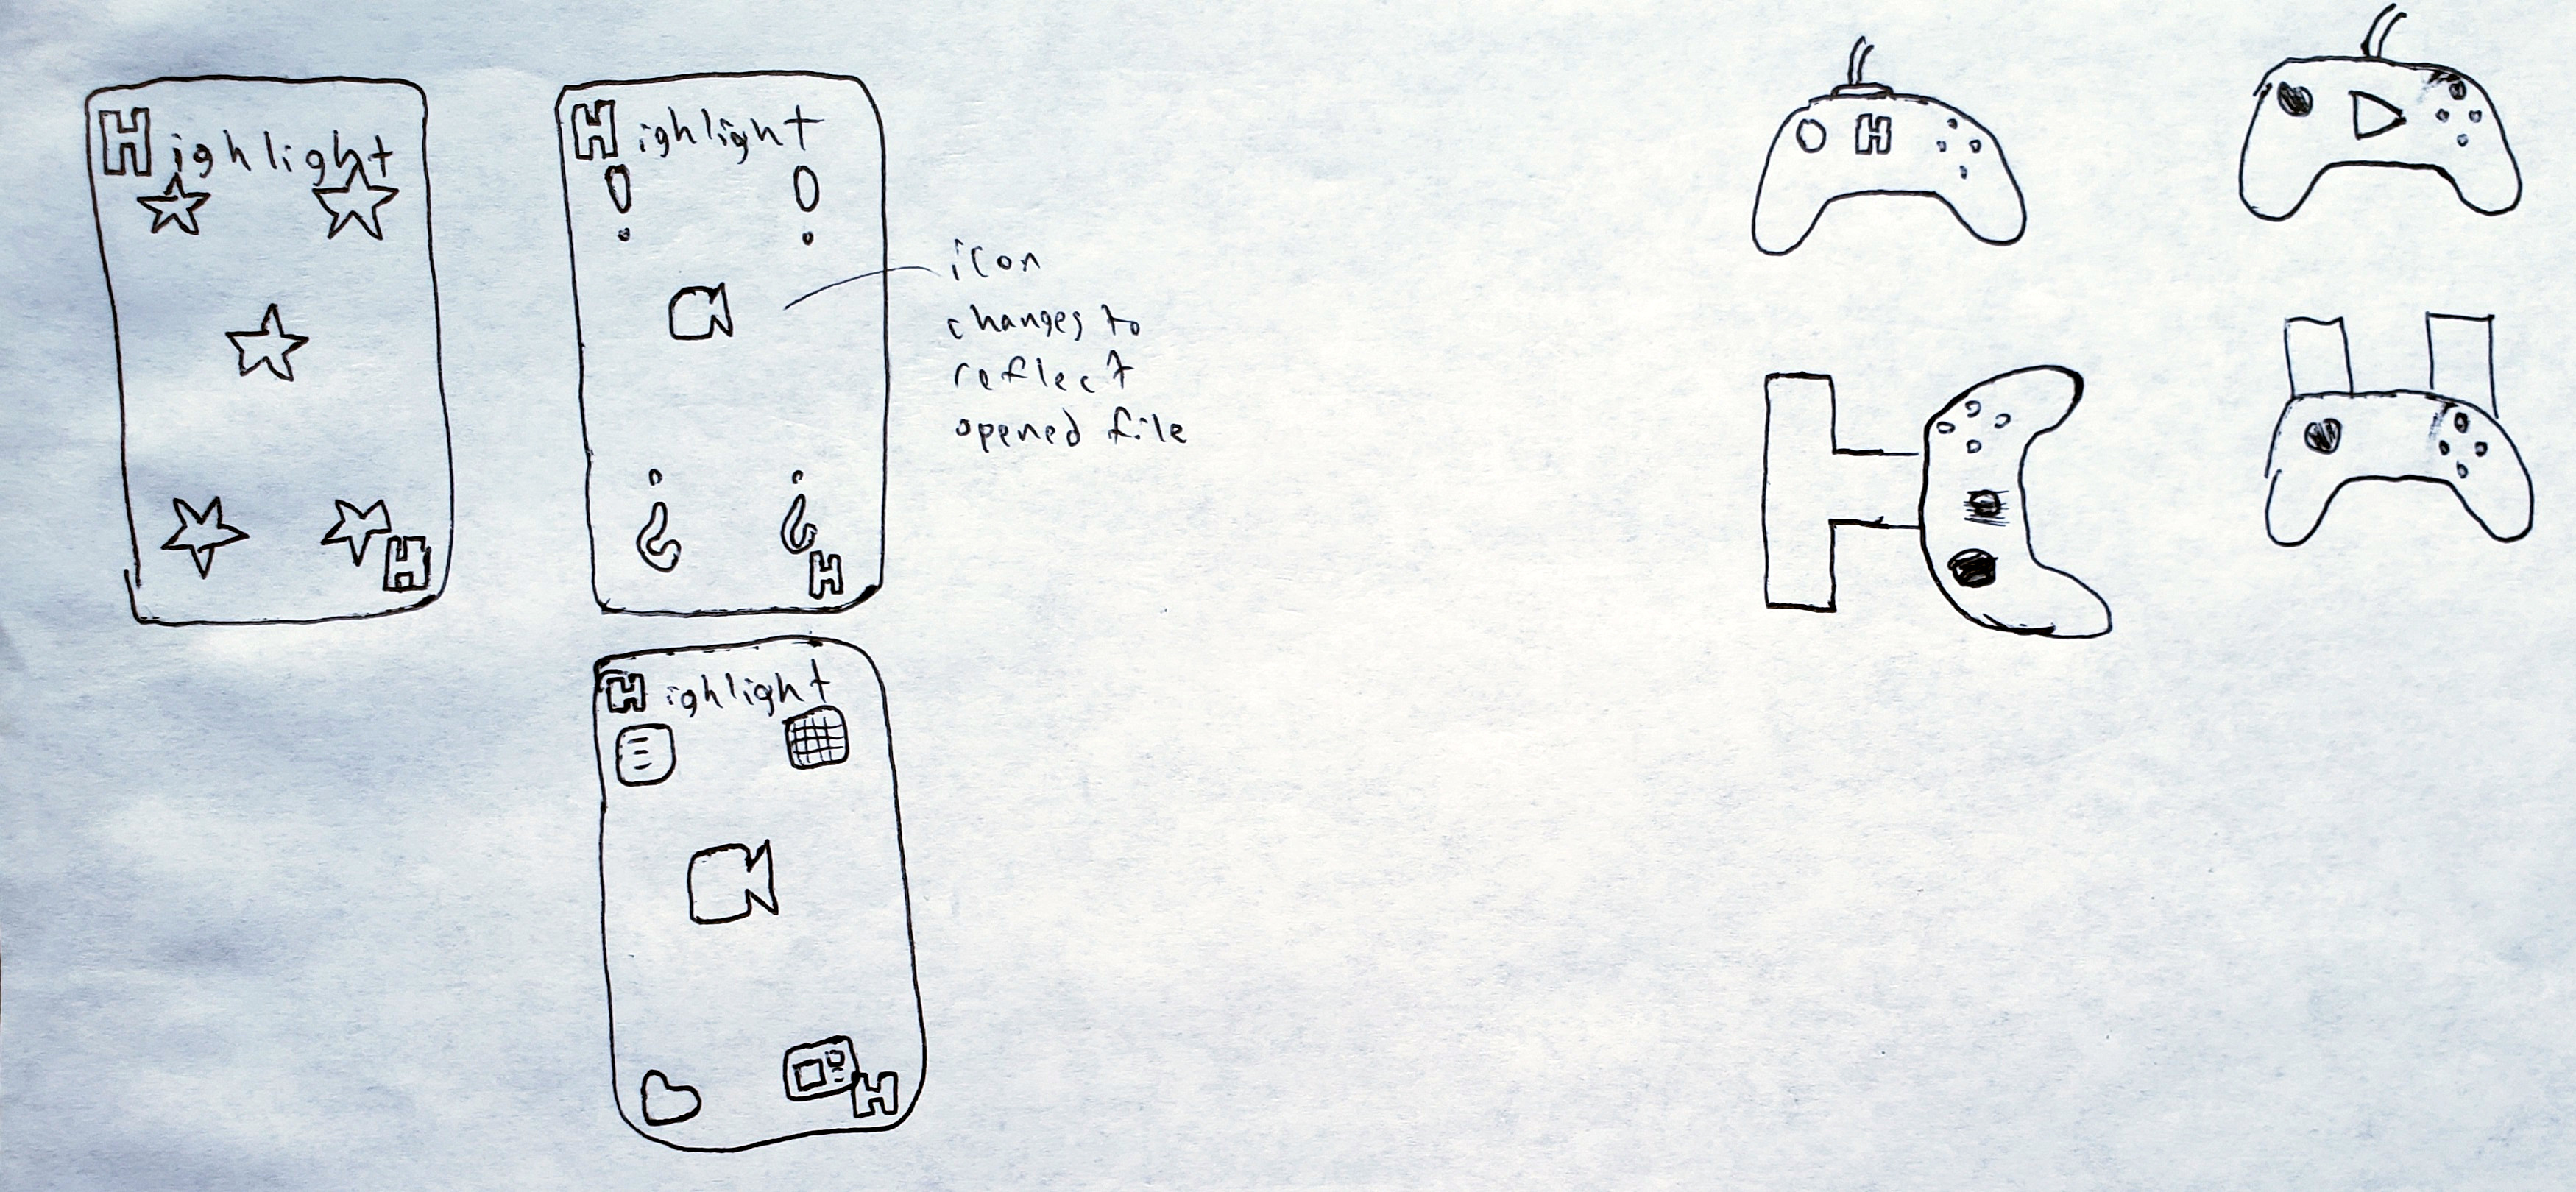 Highlight
H
Highlight
H
icon
changes to
reflect
opened file
Highlight
H
H